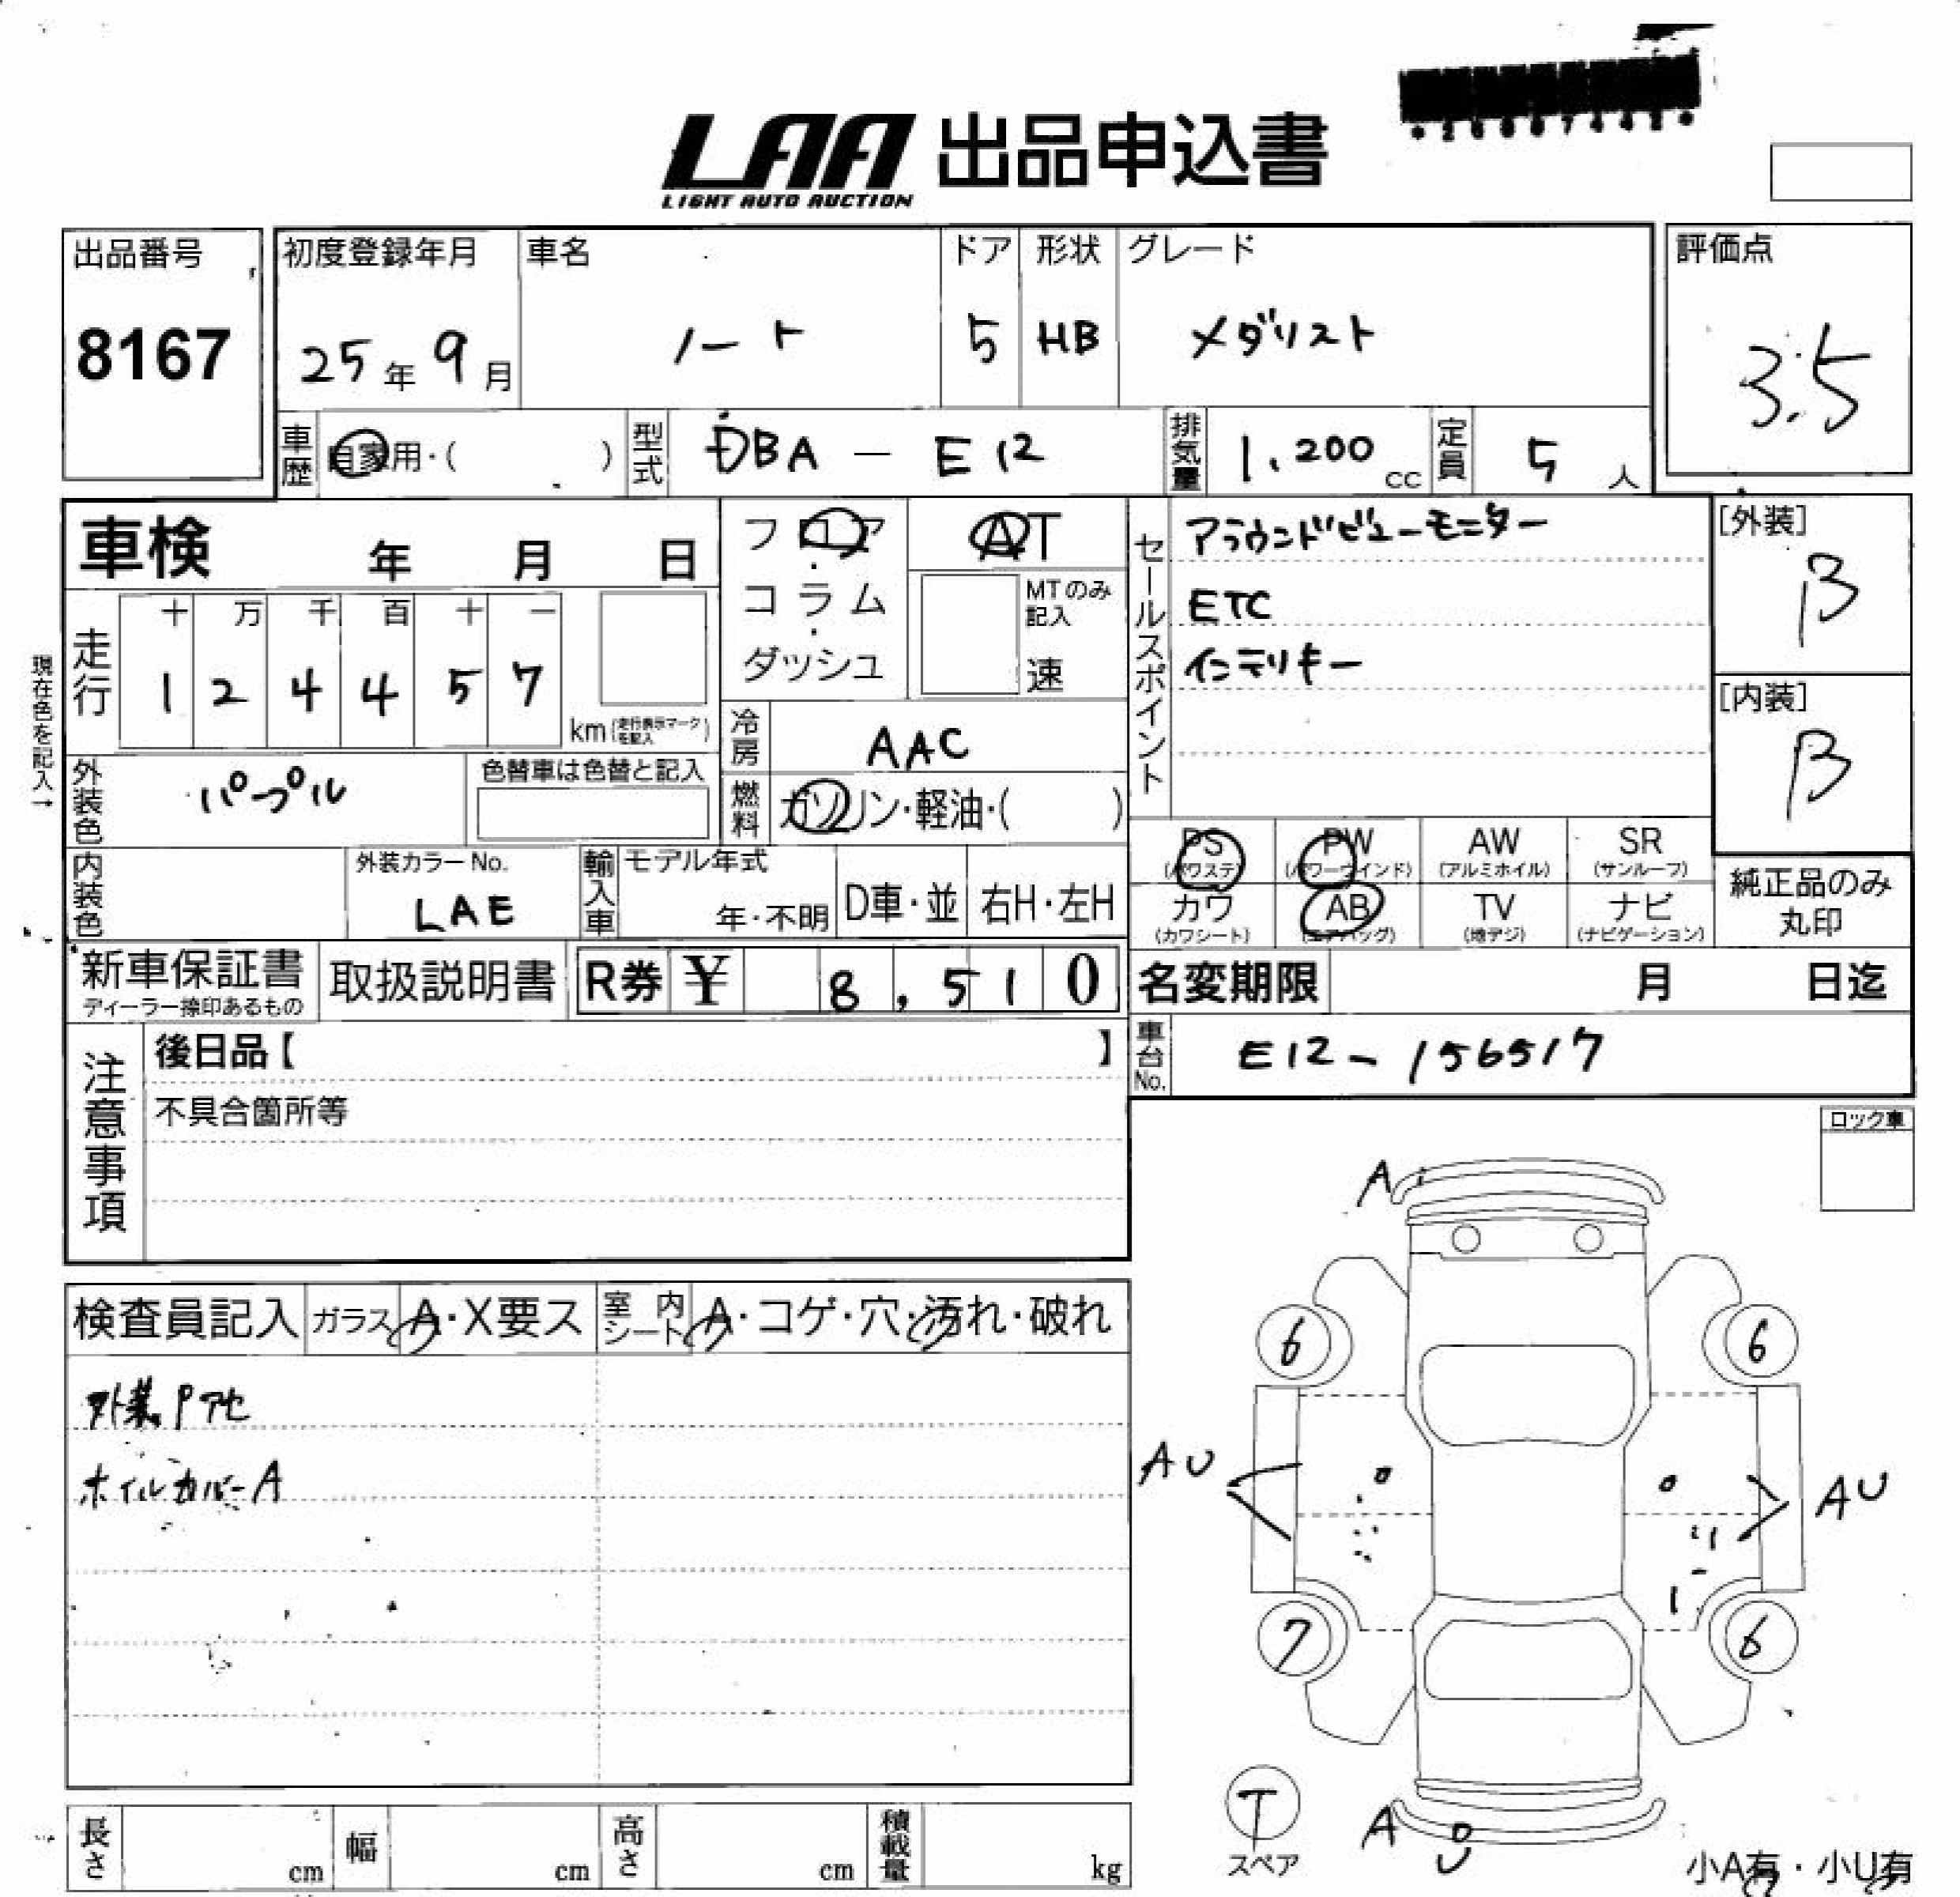 LAA 出品申込書
LIGHT AUTO AUCTION
出品番号
8167
初度登録年月
25年 9月
車名
ノート
ドア
5
形状
HB
グレード
メダリスト
評価点
3.5
車歴 自家用・( )
型式 DBA - E12
排気量 1,200 cc
定員 5 人
車検 年 月 日
フロア・コラム・ダッシュ
AT
MTのみ記入
速
セールスポイント
アラウンドビューモニター
ETC
インテリキー
[外装]
B
[内装]
B
現在色を記入→
走行
十 万 千 百 十 一
1 2 4 4 5 7
km (走行表示マークを記入)
冷房 AAC
外装色 パープル
色替車は色替と記入
燃料 ガソリン・軽油・( )
PS (パワステ) PW (パワーウインド) AW (アルミホイル) SR (サンルーフ)
カワ (カワシート) AB (エアバッグ) TV (地デジ) ナビ (ナビゲーション)
純正品のみ丸印
内装色
外装カラーNo.
LAE
輸入車 モデル年式
年・不明
D車・並
右H・左H
新車保証書
ディーラー捺印あるもの
取扱説明書
R券 ¥ 8,510
名変期限 月 日迄
車台No. E12-156517
注意事項
後日品【 】
不具合箇所等
ロック車
検査員記入 ガラス A・X要ス 室内シート A・コゲ・穴・汚れ・破れ
外装Pアセ
ホイルカバーA
A
6 6
AU AU
7 6
T
スペア
A U
小A有・小U有
長さ cm 幅 cm 高さ cm 積載量 kg